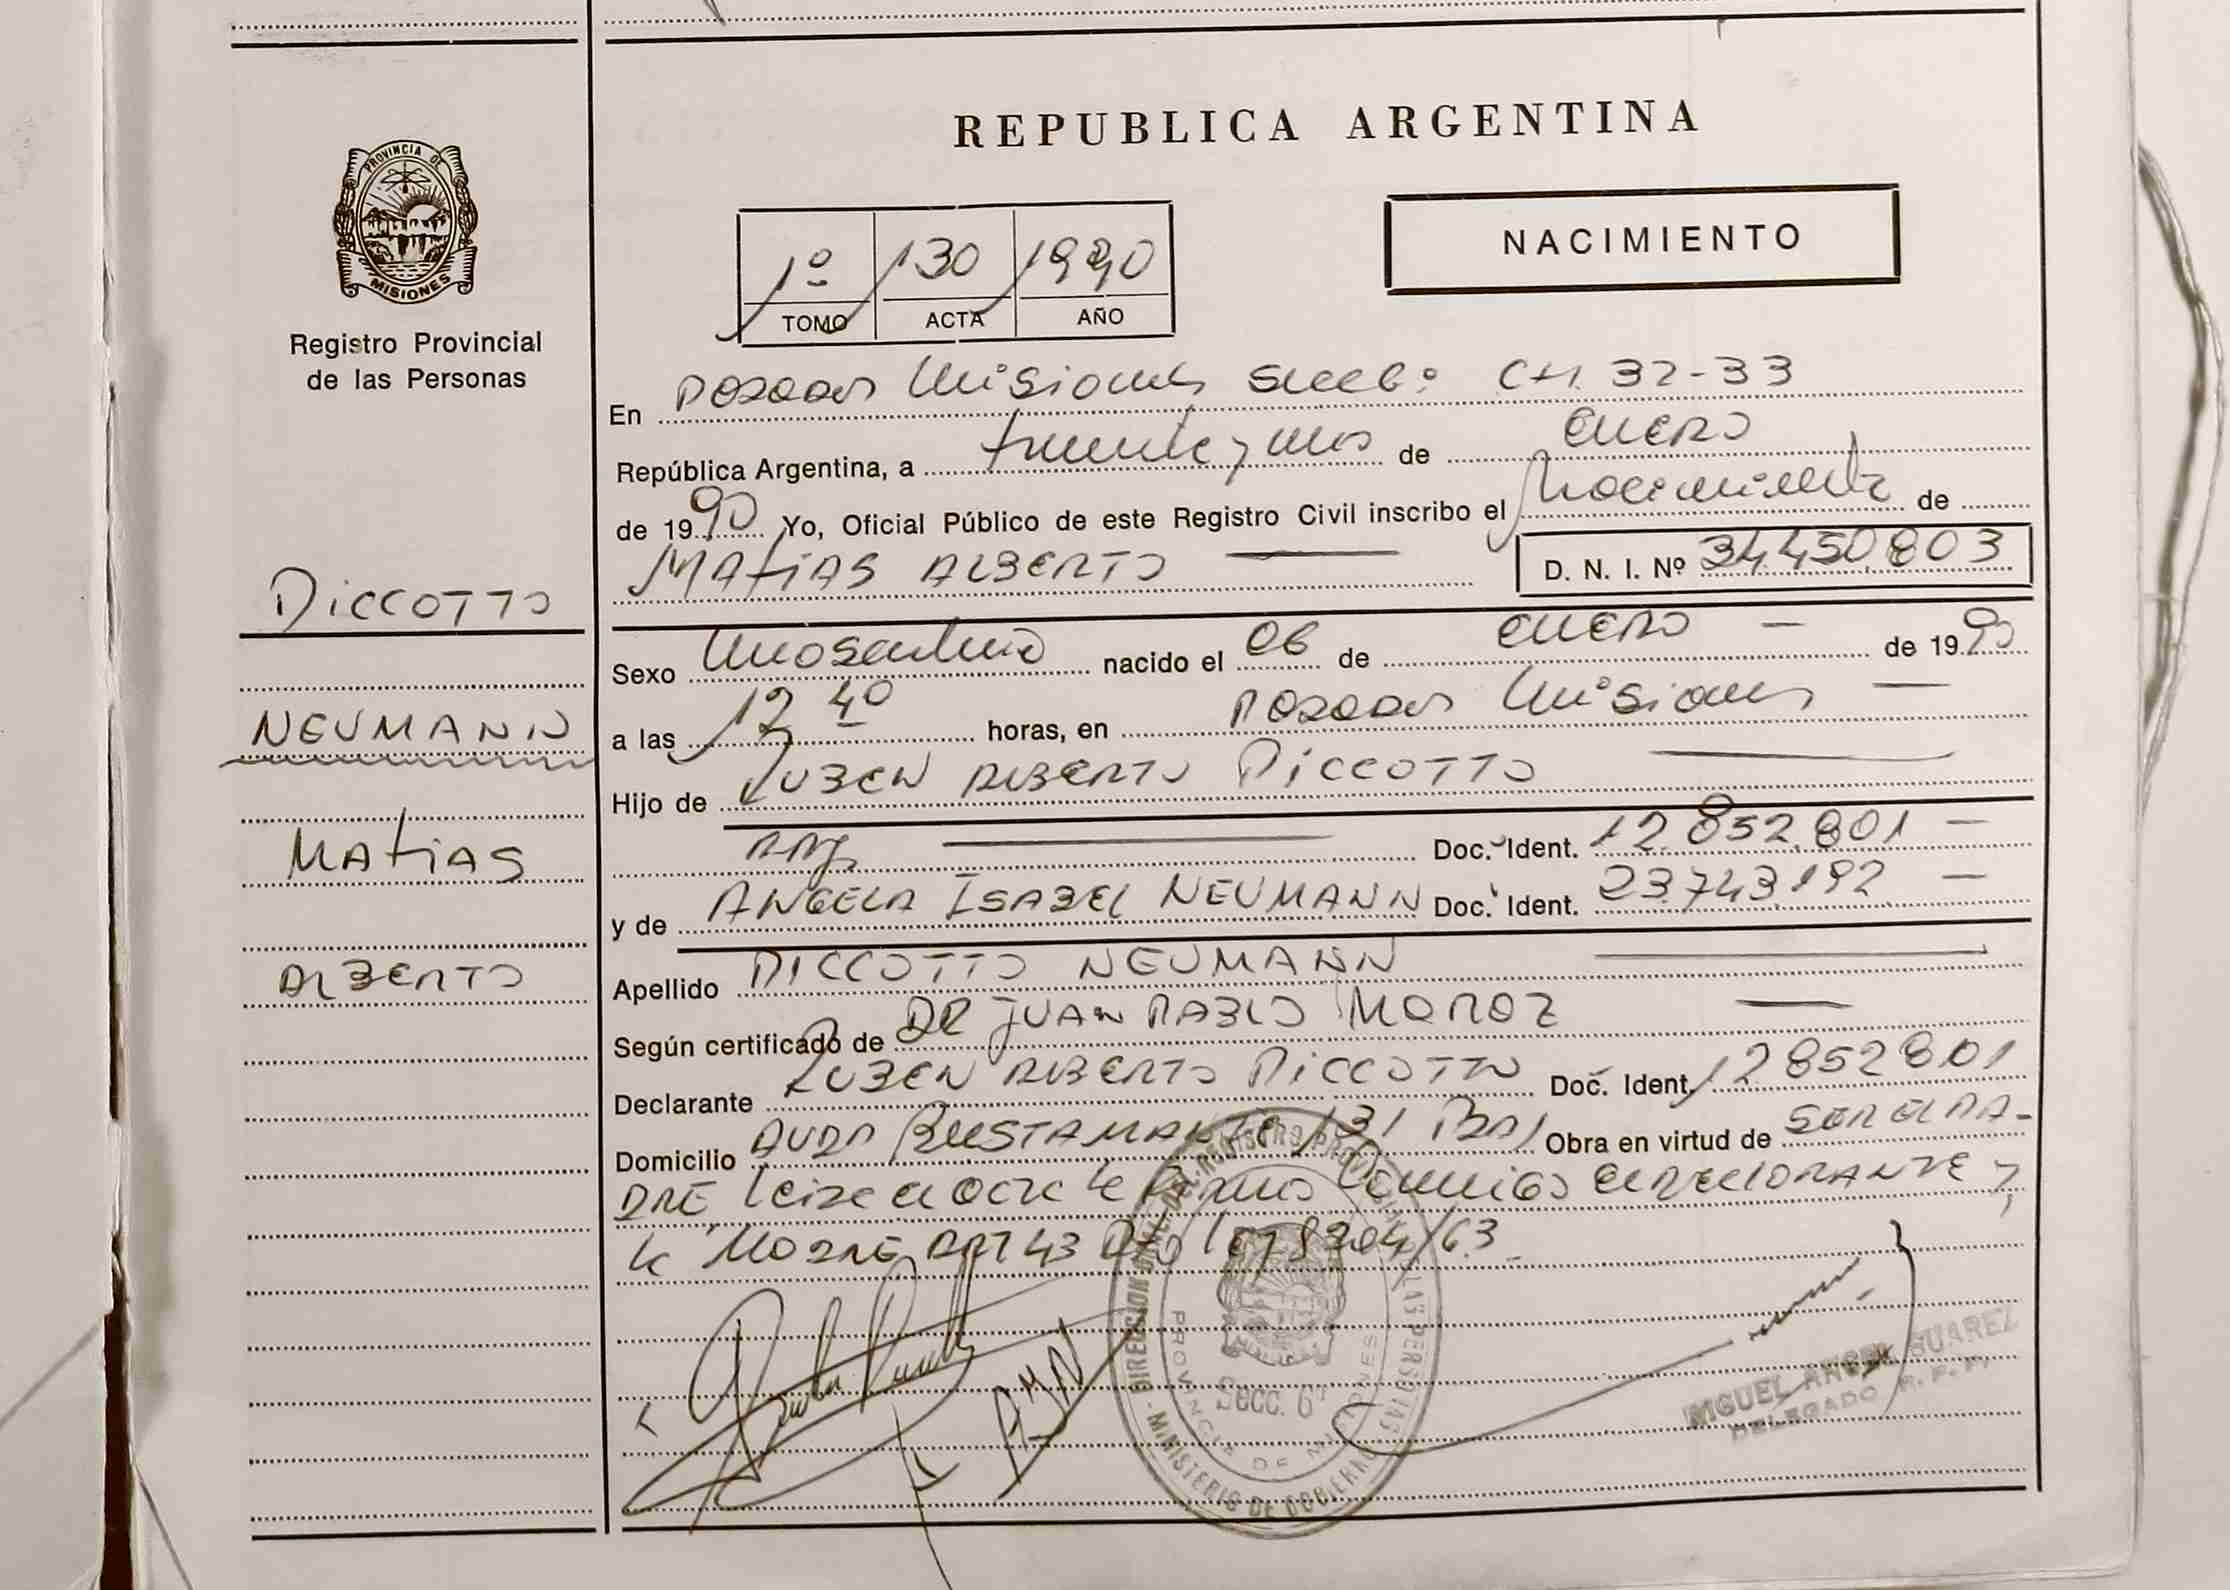 PROVINCIA DE
MISIONES
Registro Provincial
de las Personas
DICCOTTO
NEUMANN
MATIAS
ALBERTO
REPUBLICA ARGENTINA
NACIMIENTO
1º 130 1990
TOMO ACTA AÑO
En Posadas Misiones Secc 6º CH. 32-33
República Argentina, a treinta y uno de ENERO
de 1990 Yo, Oficial Público de este Registro Civil inscribo el Nacimiento de
MATIAS ALBERTO D. N. I. Nº 34.450.803
Sexo Masculino nacido el 06 de ENERO de 1990
a las 12 40 horas, en Posadas Misiones
Hijo de RUBEN ALBERTO DICCOTTO
ARG. Doc. Ident. 12.852.801
y de ANGELA ISABEL NEUMANN Doc. Ident. 23.743.192
Apellido DICCOTTO NEUMANN
Según certificado de DR JUAN PABLO MOROZ
Declarante RUBEN ALBERTO DICCOTTO Doc. Ident. 12852801
Domicilio AVDA BUSTAMANTE 131 Obra en virtud de SER EL PA-
DRE, leida el acta la firma conmigo el DECLARANTE y
la MADRE ART 43 Dto ley 8204/63
DIRECCION GRAL. DEL REGISTRO PROVINCIAL DE LAS PERSONAS
MINISTERIO DE GOBIERNO
PROVINCIA DE MISIONES
Secc. 6ª
AMN
MIGUEL ANGEL SUAREZ
DELEGADO R. P. P.